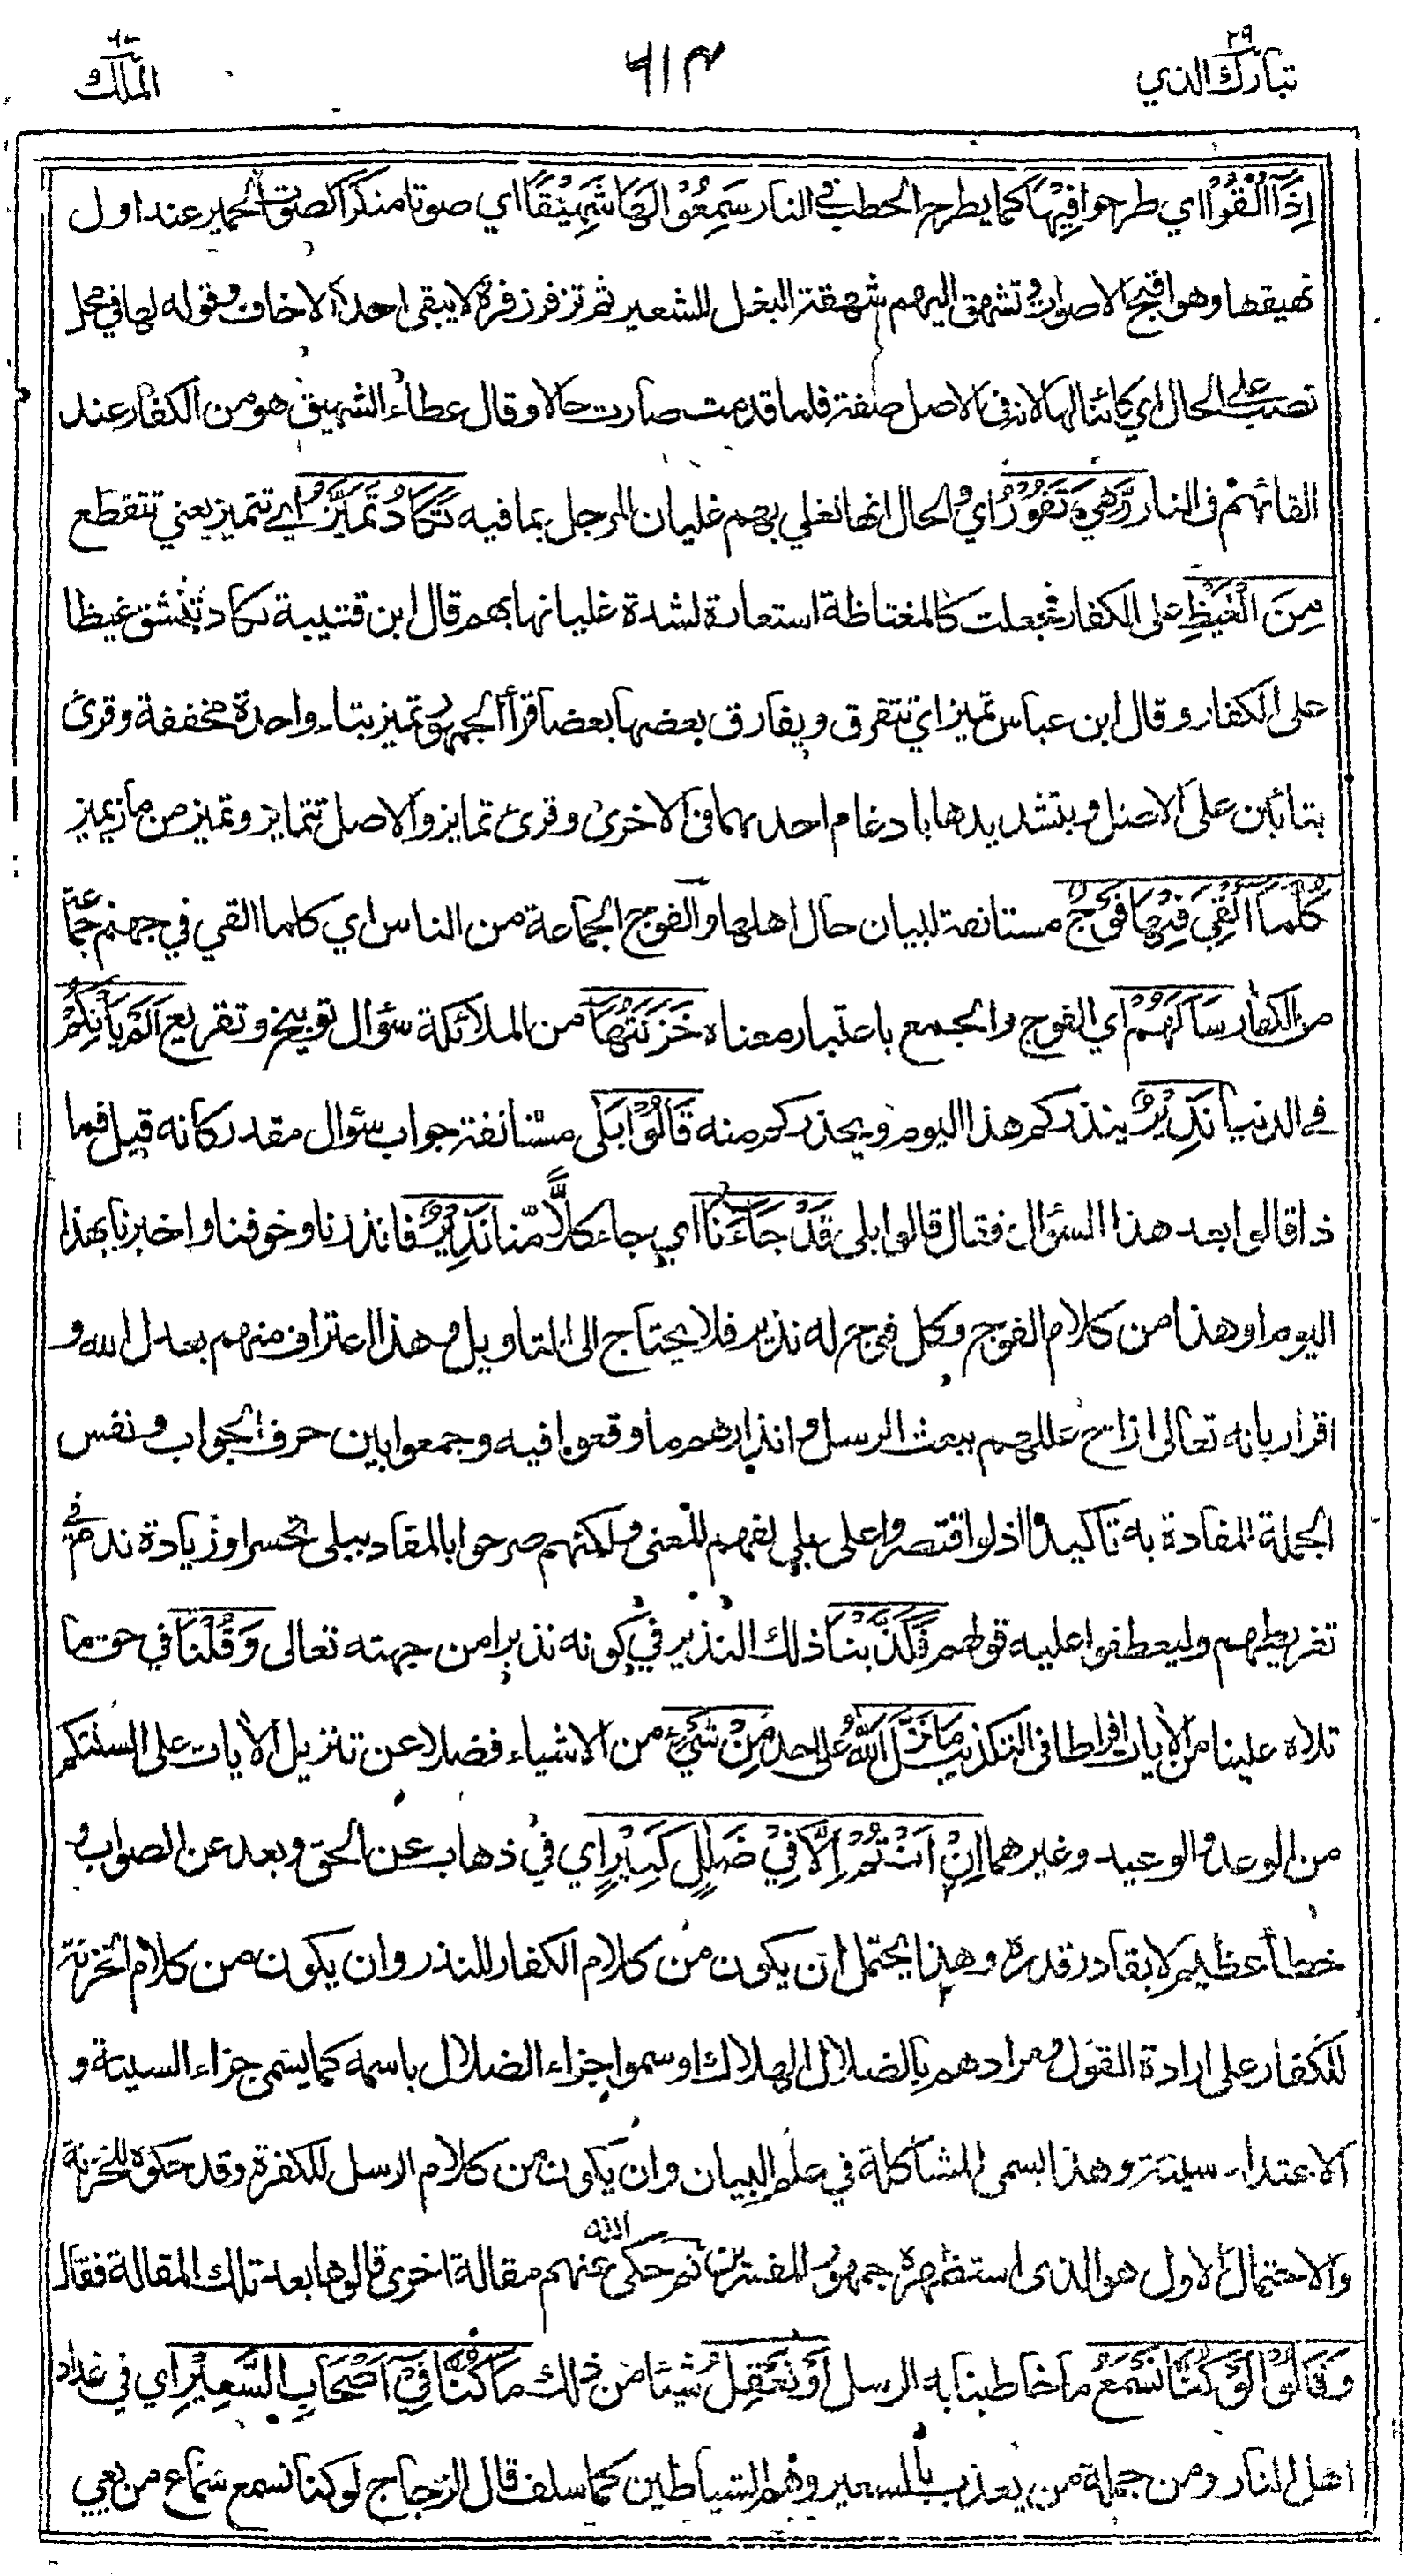 تبارك الذي ٢٩
٦١٣
الملك ٦٧
اِذَآ اُلْقُوْا اي طرحوا فِيْهَا كما يطرح الحطب في النار سَمِعُوْا لَهَا شَهِيْقًا اي صوتا منكرا كصوت الحمير عند اول
نهيقها وهو اقبح الاصوات وتشهق اليهم شهقة البغل للشعير ثم تزفر زفرة لا يبقى احد الا خاف وقوله لها في محل
نصب على الحال اي كائنا لها لانه في الاصل صفة فلما قدمت صارت حالا وقال عطاء الشهيق هو من الكفار عند
القائهم في النار وَّهِيَ تَفُوْرُ اي والحال انها تغلي بهم غليان المرجل بما فيه تَكَادُ تَمَيَّزُ اي تتميز يعني تتقطع
مِنَ الْغَيْظِ على الكفار فجعلت كالمغتاظة استعارة لشدة غليانها بهم قال ابن قتيبة تكاد تنشق غيظا
على الكفار وقال ابن عباس تميز اي تتفرق ويفارق بعضها بعضا قرأ الجمهور تميز بتاء واحدة مخففة وقرئ
بتائين على الاصل وبتشديدها بادغام احدهما في الاخرى وقرئ تمايز والاصل تتمايز وتميز من ماز يميز
كُلَّمَآ اُلْقِيَ فِيْهَا فَوْجٌ مستانفة لبيان حال اهلها والفوج الجماعة من الناس اي كلما القي في جهنم جماعة
من الكفار سَاَلَهُمْ اي الفوج والجمع باعتبار معناه خَزَنَتُهَآ من الملائكة سؤال توبيخ وتقريع اَلَمْ يَاْتِكُمْ
في الدنيا نَذِيْرٌ ينذركم هذا اليوم ويحذركم منه قَالُوْا بَلٰى مستانفة جواب سؤال مقدر كانه قيل فما
ذا قالوا بعد هذا السؤال فقال قالوا بلى قَدْ جَآءَنَا اي جاء كلًّا منا نَذِيْرٌ فانذرنا وخوفنا واخبرنا بهذا
اليوم او هذا من كلام الفوج وكل فوج له نذير فلا يحتاج الى التاويل وهذا اعتراف منهم بعدل الله و
اقرار بانه تعالى ازاح عللهم ببعث الرسل وانذارهم ما وقعوا فيه وجمعوا بين حرف الجواب ونفس
الجملة المفادة به تاكيدا اذ لو اقتصروا على بلى لفهم المعنى ولكنهم صرحوا بالمفاد ببلى تحسرا وزيادة ندم في
تفريطهم وليعطفوا عليه قولهم فَكَذَّبْنَا ذلك النذير في كونه نذيرا من جهته تعالى وَقُلْنَا في حق ما
تلاه علينا من الايات افراطا في التكذيب مَا نَزَّلَ اللّٰهُ على احد مِنْ شَيْءٍ من الاشياء فضلا عن تنزيل الايات على السنتكم
من الوعد والوعيد وغيرهما اِنْ اَنْتُمْ اِلَّا فِيْ ضَلٰلٍ كَبِيْرٍ اي في ذهاب عن الحق وبعد عن الصواب و
خطأ عظيم لا يقادر قدره وهذا يحتمل ان يكون من كلام الكفار للنذر وان يكون من كلام الخزنة
للكفار على ارادة القول ومرادهم بالضلال الهلاك او سموا جزاء الضلال باسمه كما يسمى جزاء السيئة و
الاعتداء سيئة وهذا يسمى المشاكلة في علم البيان وان يكون من كلام الرسل للكفرة وقد حكوه للخزنة
والاحتمال الاول هو الذي استظهره جمهور المفسرين ثم حكى الله عنهم مقالة اخرى قالوها بعد تلك المقالة فقال
وَقَالُوْا لَوْ كُنَّا نَسْمَعُ ما خاطبنا به الرسل اَوْ نَعْقِلُ شيئا من ذلك مَا كُنَّا فِيْٓ اَصْحَابِ السَّعِيْرِ اي في عداد
اهل النار ومن جملة من يعذب بالسعير وهم الشياطين كما سلف قال الزجاج لو كنا نسمع سماع من يعي